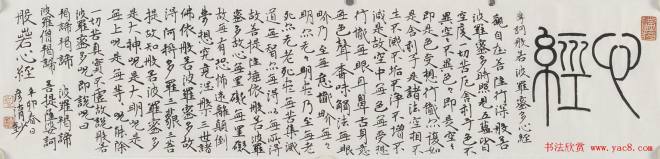 心經
摩訶般若波羅蜜多心經
觀自在菩薩行深般若
波羅蜜多時照見五蘊皆
空度一切苦厄舍利子色不
異空空不異色色即是空空
即是色受想行識亦復如
是舍利子是諸法空相不
生不滅不垢不淨不增不
減是故空中無色無受想
行識無眼耳鼻舌身意
無色聲香味觸法無眼
界乃至無意識界無無
明亦無無明盡乃至無老
死亦無老死盡無苦集滅
道無智亦無得以無所得
故菩提薩埵依般若波羅
蜜多故心無罣礙無罣礙
故無有恐怖遠離顛倒
夢想究竟涅槃三世諸
佛依般若波羅蜜多故
得阿耨多羅三藐三菩
提故知般若波羅蜜多
是大神咒是大明咒是
無上咒是無等等咒能除
一切苦真實不虛故說般若
波羅蜜多咒即說咒曰
揭諦揭諦 波羅揭諦
波羅僧揭諦 菩提薩婆訶
般若心經 辛卯春日
书法欣赏
www.yac8.com